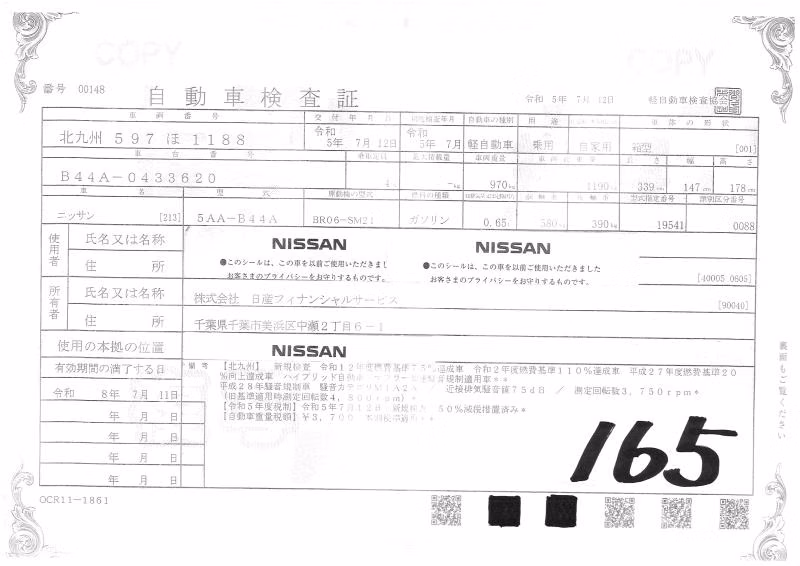 COPY COPY
番号 00148
自動車検査証
令和 5年 7月 12日 軽自動車検査協会
車両番号 交付年月日 初度検査年月 自動車の種別 用途 車体の形状
北九州 597 ほ 1188 令和 5年 7月 12日 令和 5年 7月 軽自動車 乗用 自家用 箱型 [001]
車台番号 乗車定員 最大積載量 車両重量 車両総重量 長さ 幅 高さ
B44A-0433620 4人 -kg 970kg 1190kg 339cm 147cm 178cm
車名 型式 原動機の型式 燃料の種類 型式指定番号 類別区分番号
ニッサン [213] 5AA-B44A BR06-SM21 ガソリン 0.65 580kg 390kg 19541 0088
使用者 氏名又は名称 NISSAN NISSAN
●このシールは、この車を以前ご使用いただきまし ●このシールは、この車を以前ご使用いただきました
住所 お客さまのプライバシーをお守りするものです。 お客さまのプライバシーをお守りするものです。 [40005 0605]
所有者 氏名又は名称 株式会社 日産フィナンシャルサービス [90040]
住所 千葉県千葉市美浜区中瀬2丁目6-1
使用の本拠の位置 NISSAN
有効期間の満了する日 備考 【北九州】 新規検査 令和12年度燃費基準75%達成車 令和2年度燃費基準110%達成車 平成27年度燃費基準20
%向上達成車 ハイブリッド自動車 マフラー加速騒音規制適用車**
令和 8年 7月 11日 平成28年騒音規制車 騒音カテゴリM1A2A / 近接排気騒音値75dB / 測定回転数3,750rpm*
(旧基準適用時測定回転数4,800rpm)*
年 月 日 【令和5年度税制】令和5年7月12日 新規検査 50%減税措置済み*
【自動車重量税額】¥3,700
年 月 日
年 月 日
年 月 日
165
裏面もご覧ください
OCR11-1861